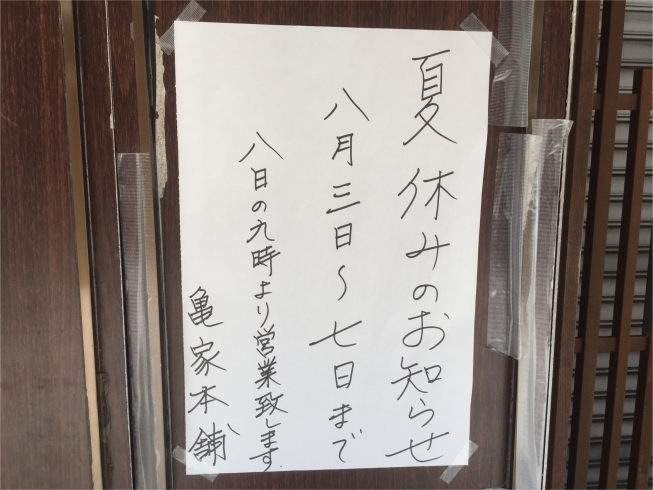 夏休みのお知らせ
八月三日～七日まで
八日の九時より営業致します.
亀家本舗